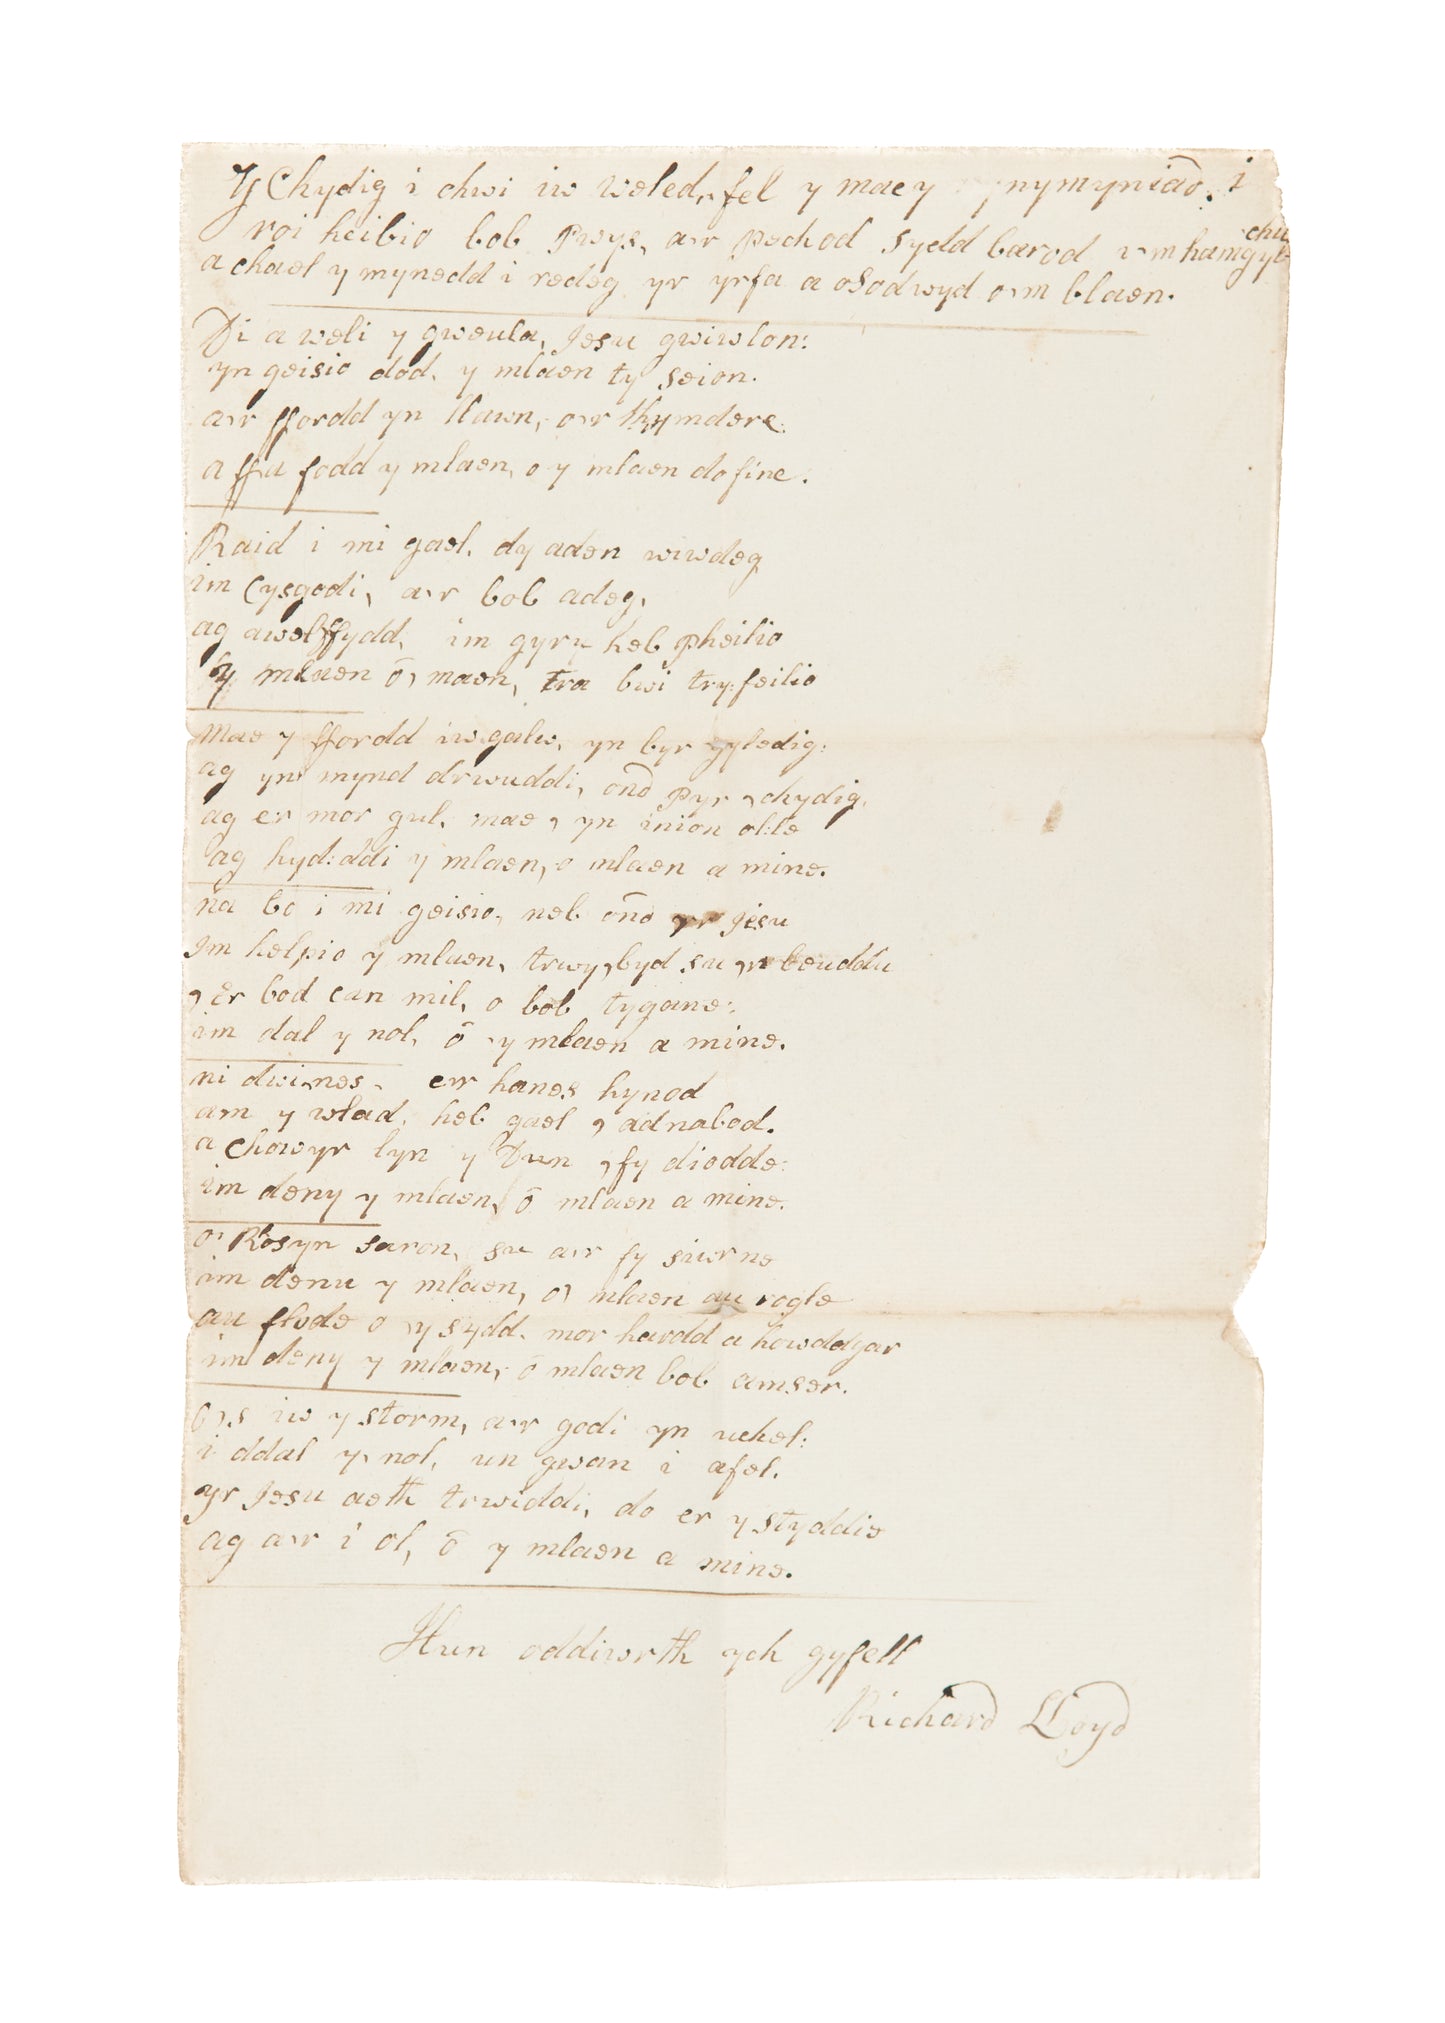 Y Chydig i chwi iw weled, fel y mae y nymyniad. i
roi heibio bob Pwys, a'r Pechod Sydd barod i'm hamgylchu
a chael y mynedd i redeg yr yrfa a osodwyd o'm blaen.
Di a weli y gweula, Jesu gwiwlon:
yn geisio dod, y mlaen ty Seion.
a'r ffordd yn llawn, o'r thymdere.
a ffu fodd y mlaen, o y mlaen do fine.
Raid i mi gael. dy aden wiwdeg
im Cysgodi, a'r bob adeg,
ag awel ffydd, im gyru heb pheilio
y mlaen ō, maen, tra bwi try:feilio
Mae y ffordd iw galw, yn byr gyledig:
ag yn mynd drwuddi, ond Pyr, chydig,
ag er mor gul, mae, yn inion ol:le
ag hyd:ddi y mlaen, o mlaen a mine.
na bo i mi geisio, neb ond yr Jesu
Im helpio y mlaen, trwy, byd su, n beuddu
, Er bod can mil, o bob tygane:
im dal y nol, ō y mlaen a mine.
ni dwi,nes, er hanes hynod
am y wlad, heb gael, adnabod.
a Chowyr lyn y Dun, fy diodde:
im deny y mlaen, ō mlaen a mine.
o' Rosyn Saron, su a'r fy siwrne
im denu y mlaen, o, mlaen au rogle
au flode o, y sydd, mor hardd a howddgar
im deny y mlaen, ō mlaen bob amser.
os iw y storm, a'r godi yn uchel:
i ddal y, nol, un gwan i afel.
yr Jesu aeth trwiddi, do er y styddie
ag a'r i ol, ō y mlaen a mine.
Hun oddiwrth ych gyfell
Richard Lloyd